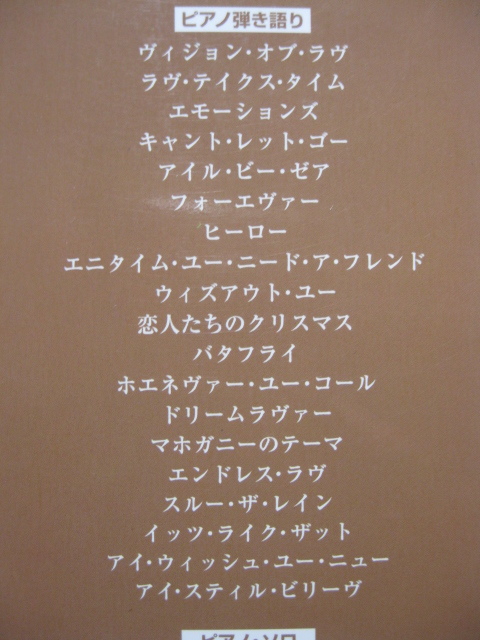 ピアノ弾き語り
ヴィジョン・オブ・ラヴ
ラヴ・テイクス・タイム
エモーションズ
キャント・レット・ゴー
アイル・ビー・ゼア
フォーエヴァー
ヒーロー
エニタイム・ユー・ニード・ア・フレンド
ウィズアウト・ユー
恋人たちのクリスマス
バタフライ
ホエネヴァー・ユー・コール
ドリームラヴァー
マホガニーのテーマ
エンドレス・ラヴ
スルー・ザ・レイン
イッツ・ライク・ザット
アイ・ウィッシュ・ユー・ニュー
アイ・スティル・ビリーヴ
ピアノ・ソロ